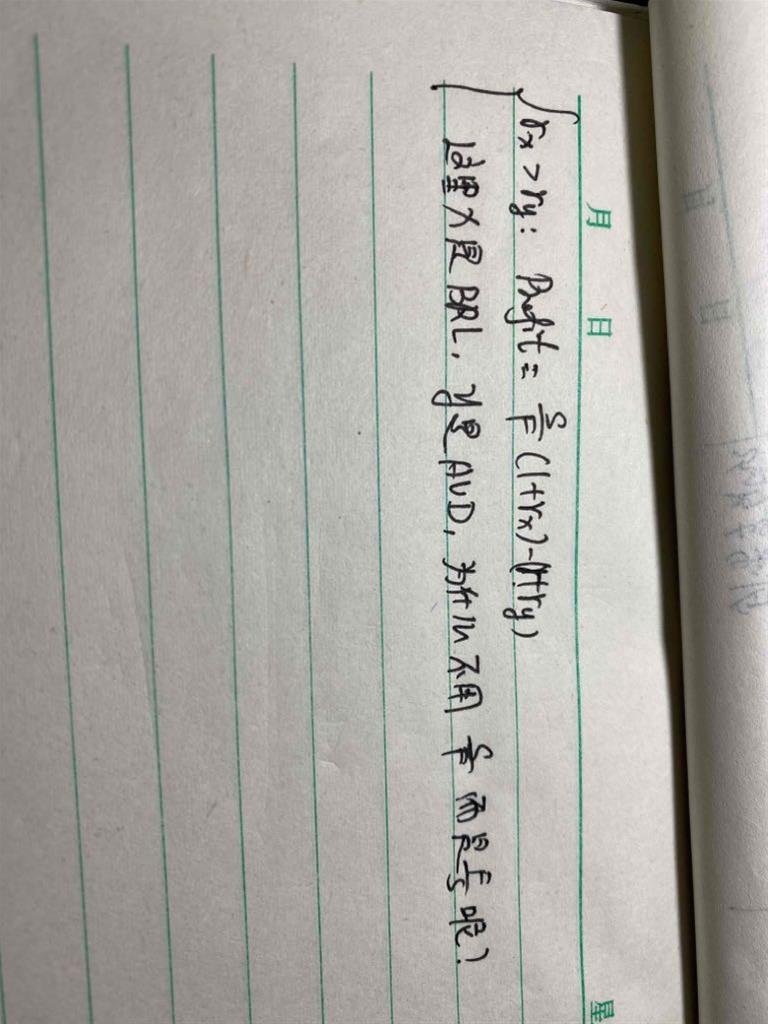 月 日 星
rx > ry: Profit = S/F (1+rx) - (1+ry)
这里X是BRL, y是AUD, 为什么不用 S/F 而是 F/S 呢?